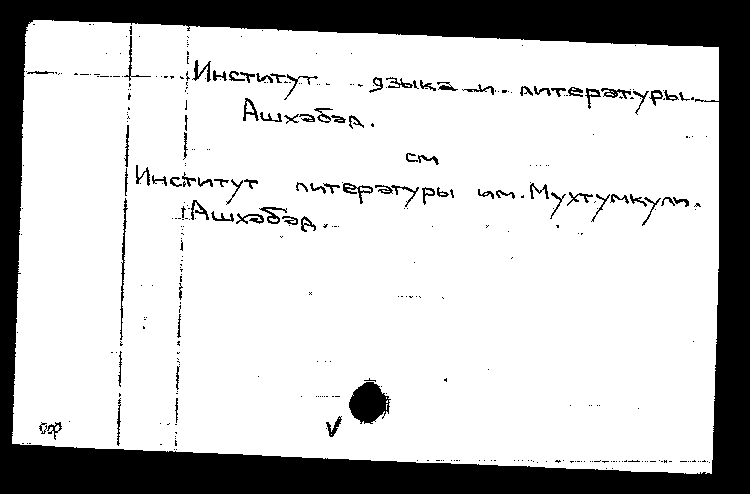 Институт языка и литературы
Ашхабад.
см
Институт литературы им. Мухтумкули.
Ашхабад.
V